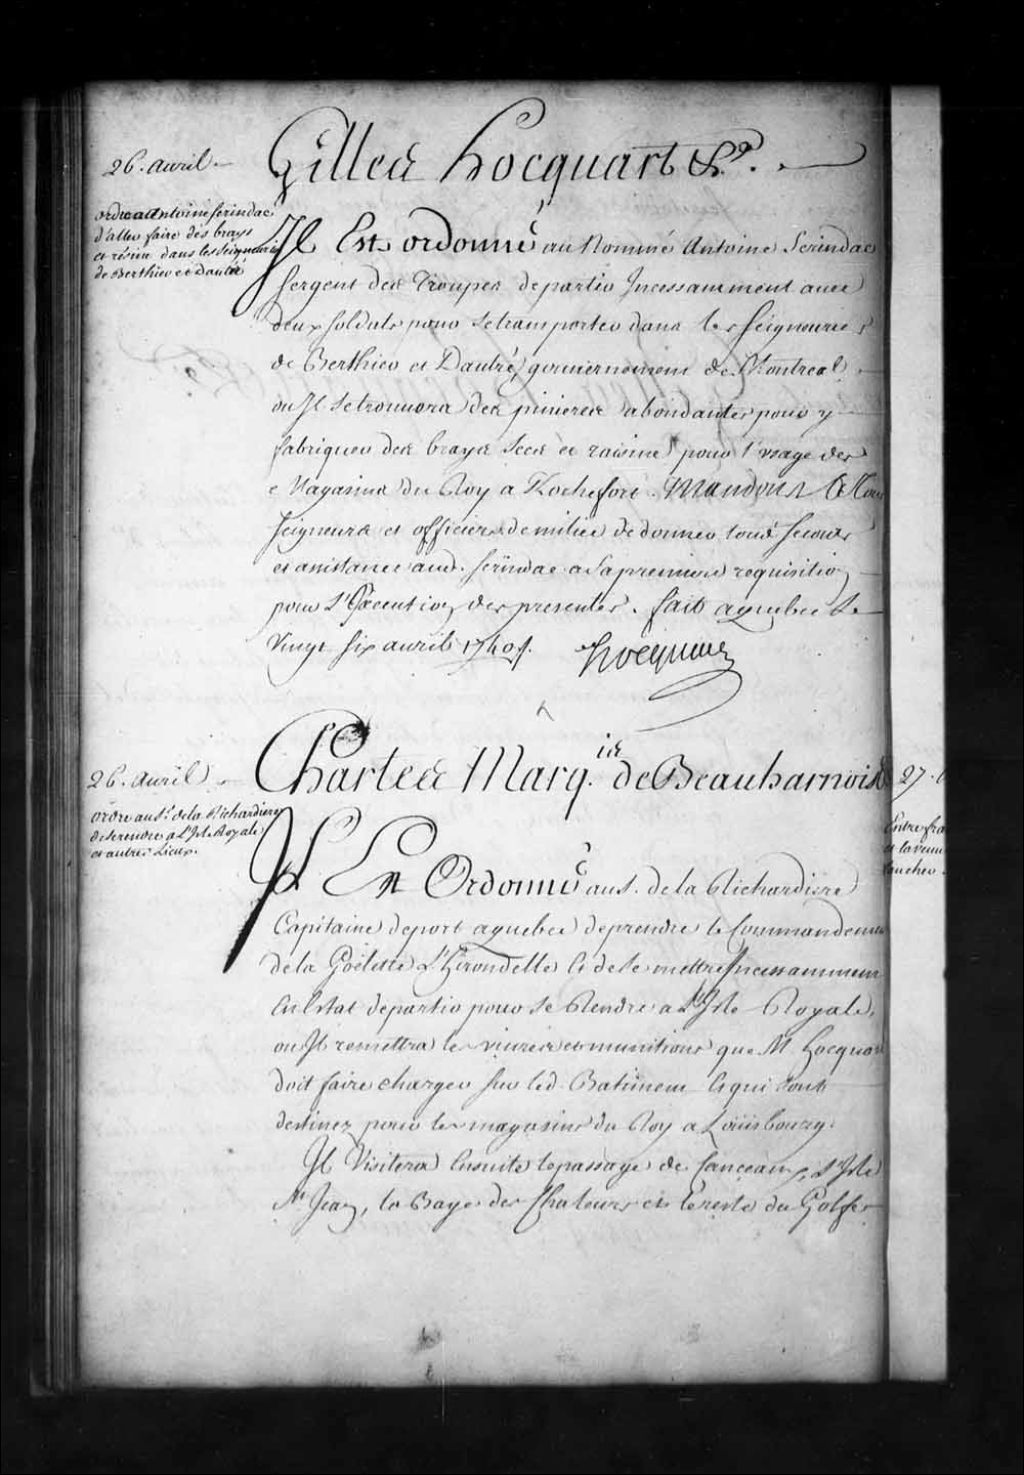 26. avril.
Gilles hocquart &ca.
ordre a antoine serindac
d'aller faire des brays
et résine dans les seigneuries
de Berthier et dautré
Il Est ordonné au Nommé Antoine Serindac
sergent des Troupes de partir Incessamment avec
deux soldats pour se transporter dans les seigneuries
de Berthier et Dautré, gouvernement de Montreal
ou Il se trouvera des pinieres abondantes pour y
fabriquer des brays secs et raisine pour l'usage des
Magasins du Roy a Rochefort. Mandons A Tous
seigneurs et officiers de milice de donner tous secours
et assistance aud. serindac a sa premiere requisition
pour L'Execution des presentes. fait a quebec le
vingt six avril 1740 ./.
hocquart
26. avril
Charles Marq.is de Beauharnois &
ordre au Sr. de la Richardiere
de se rendre a L'Isle Royale
et autres Lieux.
Il Est Ordonné au S. de la Richardiere
Capitaine de port a quebec de prendre le Commandement
de la Goëlette L'hirondelle et de se mettre Incessamment
En Estat de partir pour se Rendre a L'Isle Royale,
ou Il remettra les vivres et munitions que M hocquart
doit faire charger sur led. Batiment Et qui sont
destinez pour les magasins du Roy a Loüisbourg.
Il Visitera Ensuite le passage de Canceaux, L'Isle
St. Jean, la Baye des Chaleurs et le reste du Golfe
27.
Entre fra
et la veuve